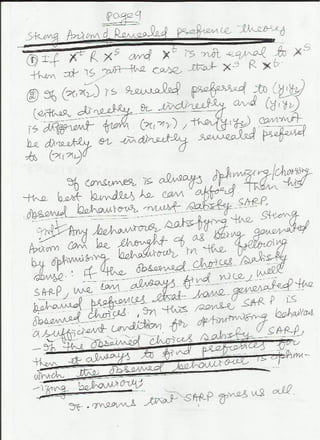 Page 9
Strong Axiom of Revealed Preference theory
① If X^t R X^s and X^t is not equal to X^s
then it is not the case that X^s R X^t.
② If (x₁x₂) is Revealed preferred to (y₁y₂)
(either directly or indirectly and (y₁y₂)
is different from (x₁x₂), then (y₁y₂) cannot
be directly or indirectly revealed preferred
to (x₁x₂)
If consumer is always optimizing/choosing
the best bundles he can afford then his
observed behaviour must satisfy SARP.
Any behaviour satisfying the Strong
Axiom can be thought of as being generated
by optimising behaviour in the following
sense: If the observed choices satisfy
SARP, we can always find nice, well
behaved preferences that have generated the
observed choices. In this sense SARP is
a sufficient condition for optimising behaviour
If the observed choices satisfy SARP,
then it always to find preferences for
which the observed behaviour is optimi-
-izing behaviour;
It means that SARP gives us all